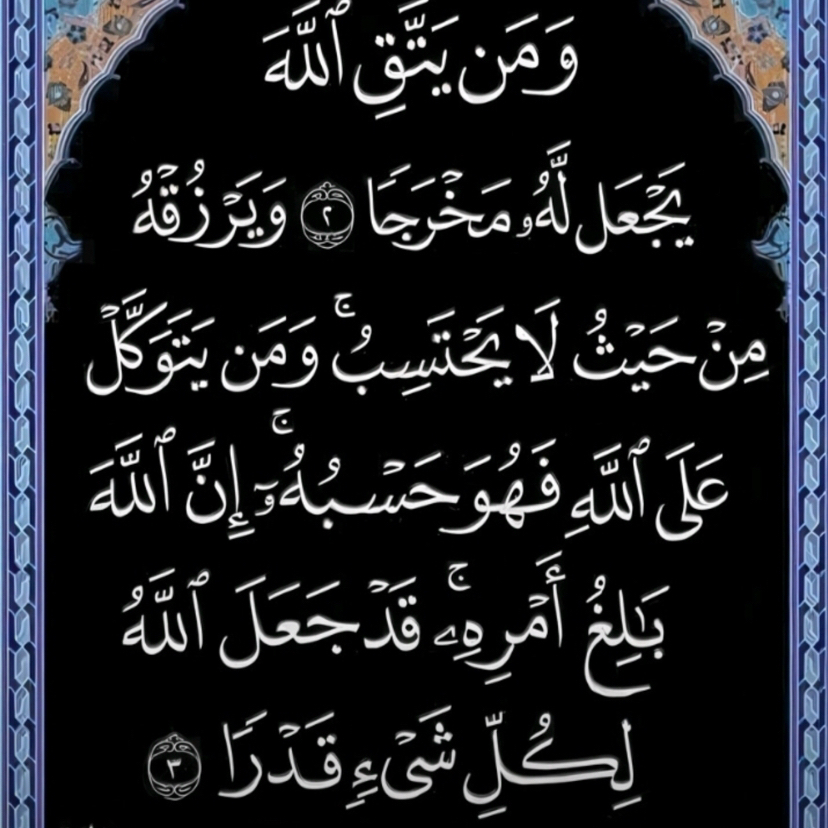 وَمَن يَتَّقِ ٱللَّهَ
يَجْعَل لَّهُۥ مَخْرَجًا ٢ وَيَرْزُقْهُ
مِنْ حَيْثُ لَا يَحْتَسِبُ ۚ وَمَن يَتَوَكَّلْ
عَلَى ٱللَّهِ فَهُوَ حَسْبُهُۥٓ ۚ إِنَّ ٱللَّهَ
بَٰلِغُ أَمْرِهِۦ ۚ قَدْ جَعَلَ ٱللَّهُ
لِكُلِّ شَىْءٍ قَدْرًا ٣